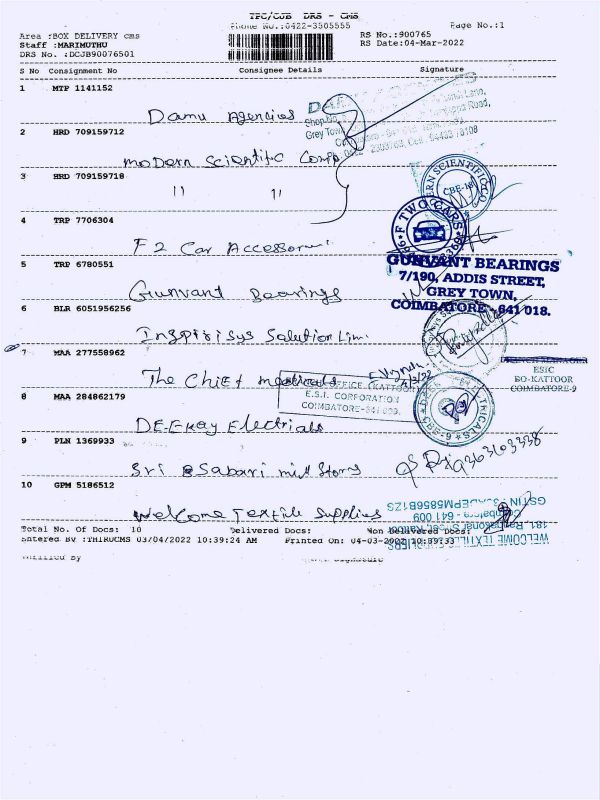 TPC/CJB DRS - CMS
Phone No.:0422-3505555 Page No.:1
Area :BOX DELIVERY cms RS No.:900765
Staff :MARIMUTHU RS Date:04-Mar-2022
DRS No. :DCJB90076501
S No Consignment No Consignee Details Signature
1 MTP 1141152
Damu Agencies
Shop No.
Grey Town
2 HRD 709159712
Modern Scientific Comp
3 HRD 709159718
" "
CBE-18
4 TRP 7706304
F TWO CARS
F2 Car Accessori
5 TRP 6780551
GUNVANT BEARINGS
7/190, ADDIS STREET,
GREY TOWN,
COIMBATORE - 641 018.
Gunvant Bearings
6 BLR 6051956256
Inspirisys Solution Lim.
7 MAA 277558962
BRANCH MANAGER
ESIC
BO-KATTOOR
COIMBATORE-9
The Chief
4/3/22
OFFICE (KATTOOR)
E.S.I. CORPORATION
COIMBATORE-641 009.
8 MAA 284862179
DEE-Kay Electricals
9 PLN 1369933
Sri Sabari mill Stores
9363103338
10 GPM 5186512
Welcome Textile Supplies
WELCOME TEXTILE SUPPLIERS
Total No. of Docs: 10 Delivered Docs: Non Delivered Docs:
Entered By :THIRUCMS 03/04/2022 10:39:24 AM Printed On: 04-03-2022 10:39:33
Verified By Signature